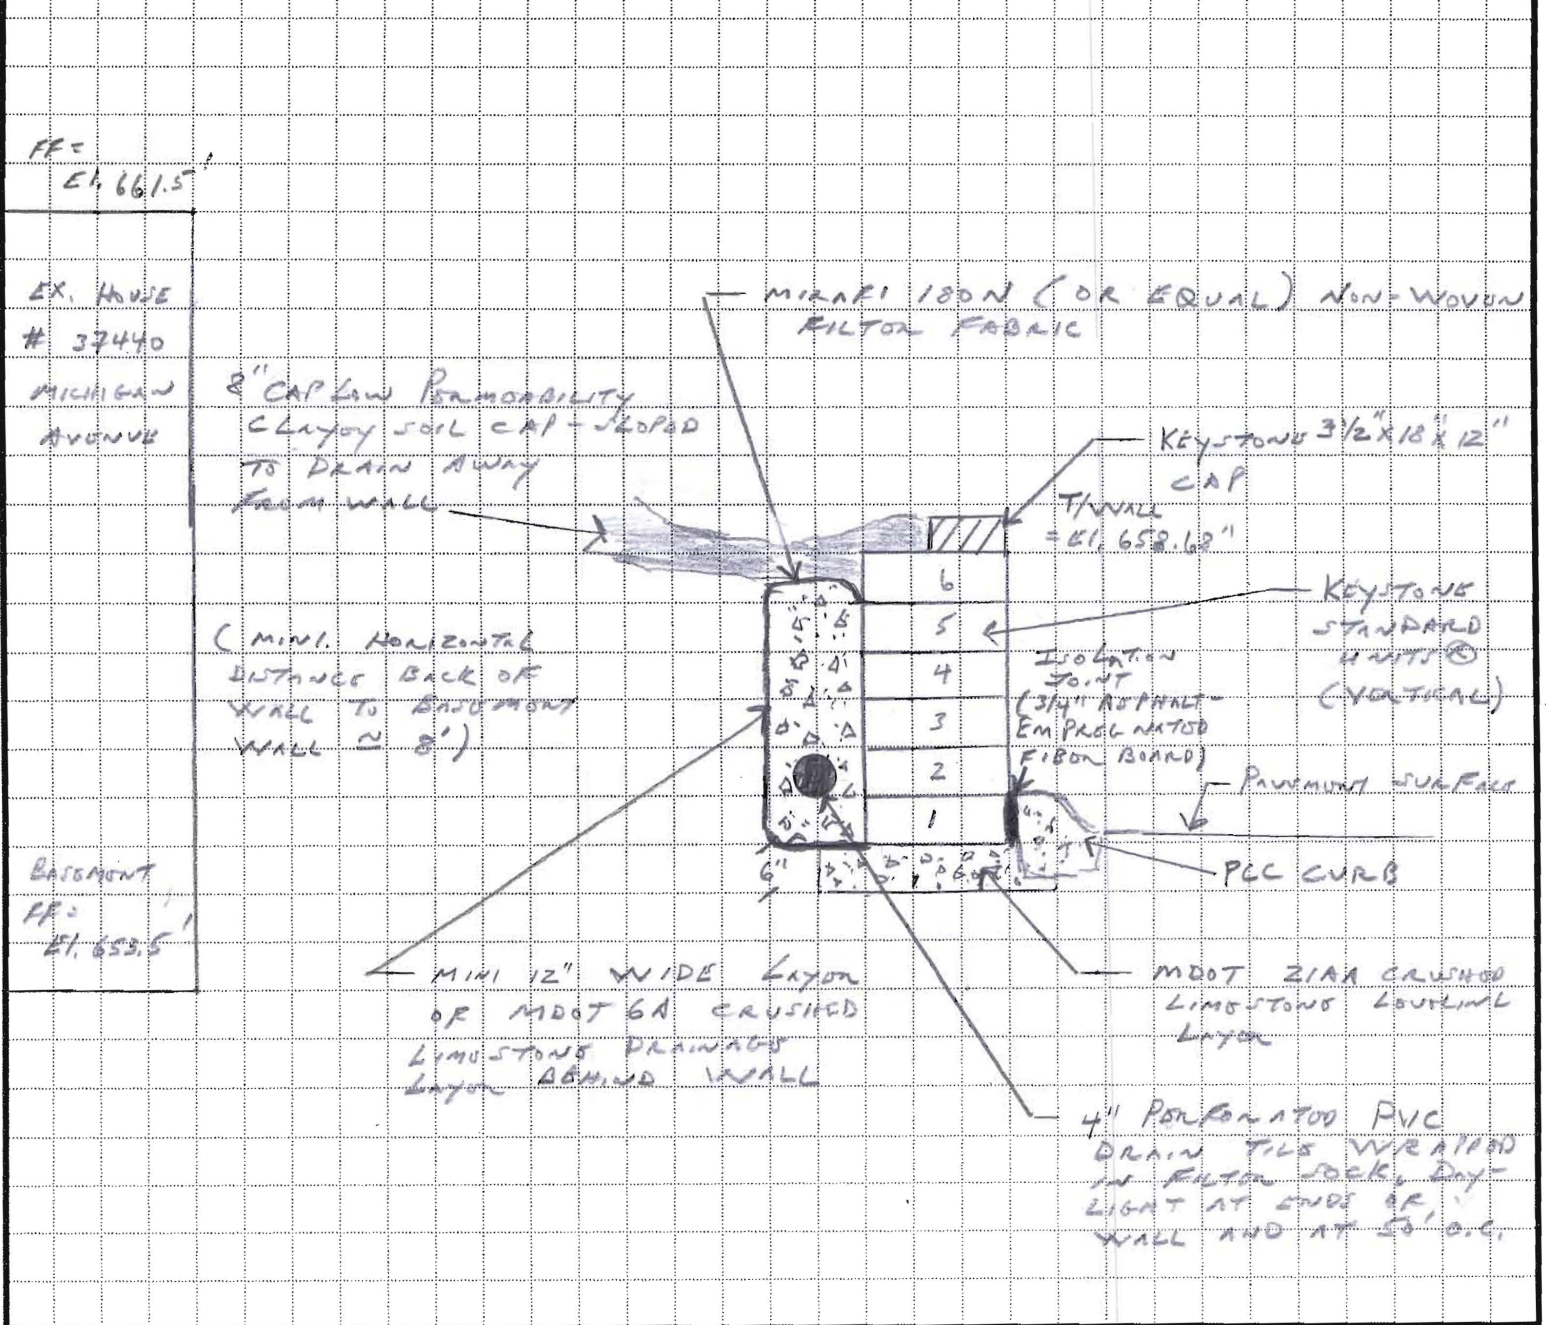 FF =
El. 661.5'
EX. HOUSE
# 37440
MICHIGAN
AVENUE
BASEMENT
FF =
El. 653.5'
MIRAFI 180N (OR EQUAL) NON-WOVEN
FILTER FABRIC
8" CAP LOW PERMEABILITY
CLAYEY SOIL CAP - SLOPED
TO DRAIN AWAY
FROM WALL
KEYSTONE 3 1/2" X 18" X 12"
CAP
T/WALL
= El. 658.68"
KEYSTONE
STANDARD
UNITS ©
(VERTICAL)
6
5
4
3
2
1
ISOLATION
JOINT
(3/4" ASPHALT-
EMPREGNATED
FIBER BOARD)
(MINI. HORIZONTAL
DISTANCE BACK OF
WALL TO BASEMENT
WALL ≃ 8')
PAVEMENT SURFACE
PCC CURB
6"
MINI 12" WIDE LAYER
OF MDOT 6A CRUSHED
LIMESTONE DRAINAGE
LAYER BEHIND WALL
MDOT 21AA CRUSHED
LIMESTONE LEVELING
LAYER
4" PERFORATED PVC
DRAIN TILE WRAPPED
IN FILTER SOCK, DAY-
LIGHT AT ENDS OF
WALL AND AT 50' O.C.